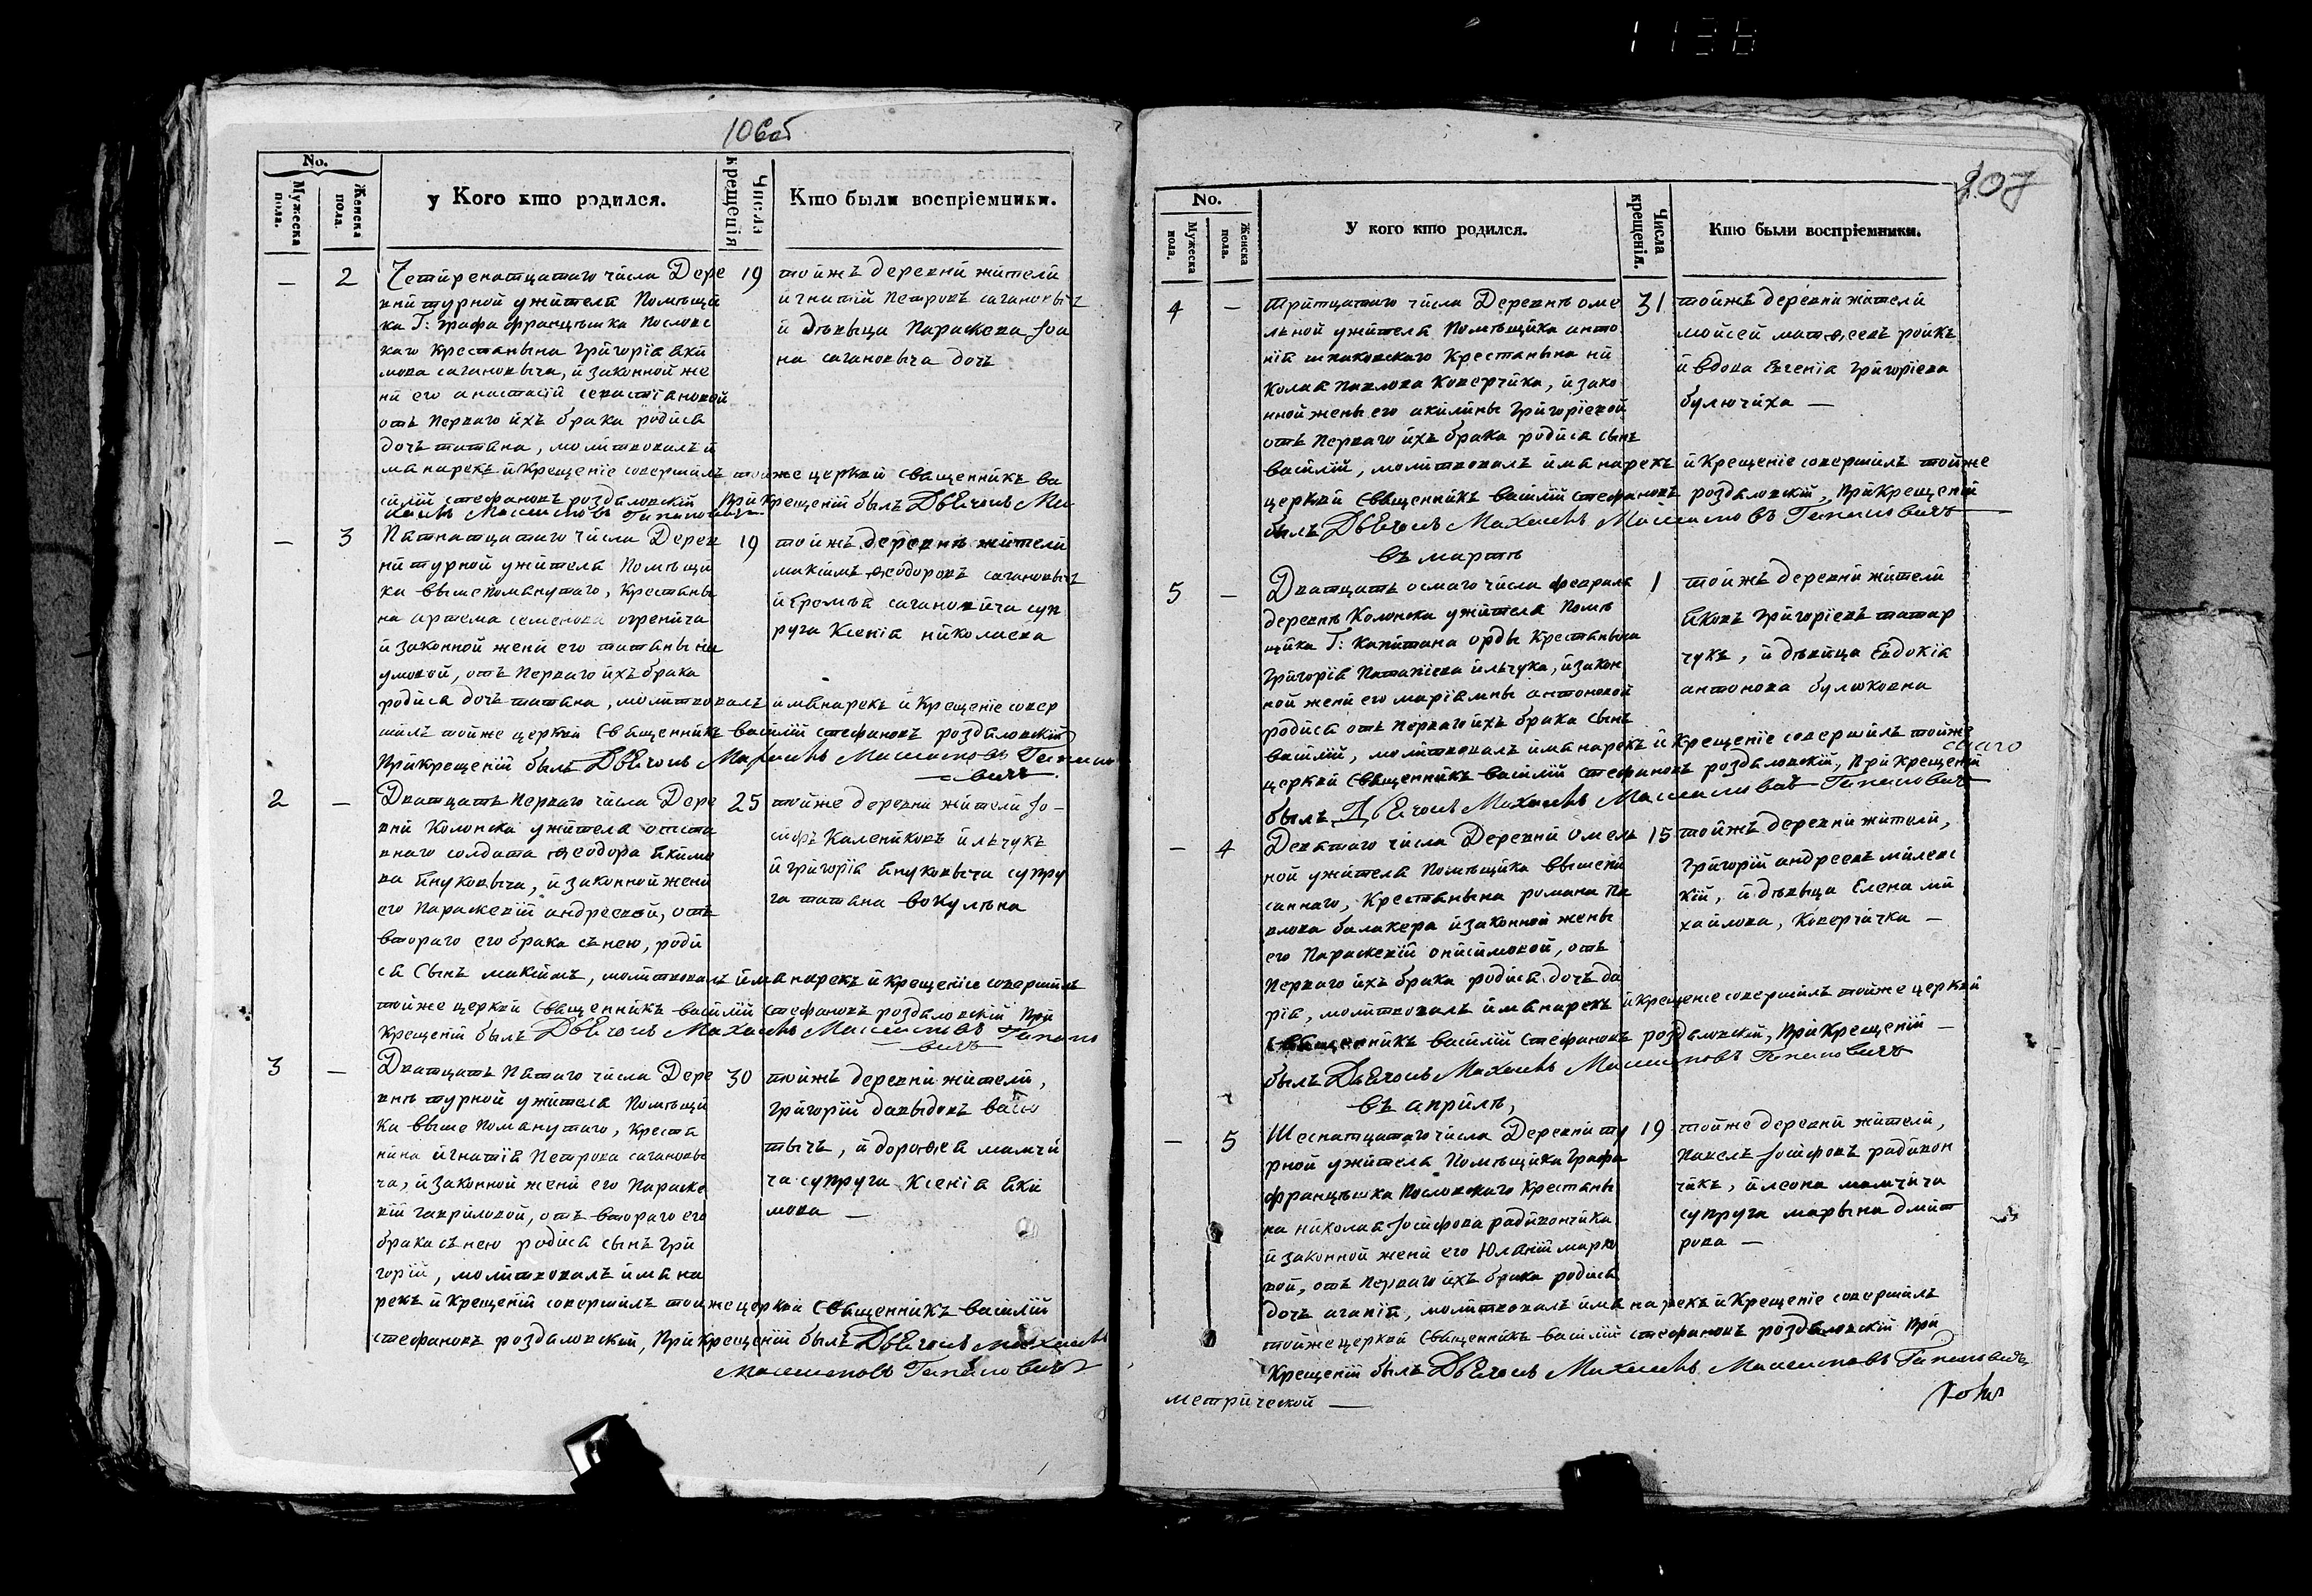 1136
106об
No.
Мужеска пола.
Женска пола.
у Кого кто родился.
Числа крещенія
Кто были воспріемники.
—
2
Четиренатцатаго числа Дере
вни турной ужителя Помѣщи
ка Г: Графа францѣшка Пословс
каго Крестянына Григорія Аки
мова сагановыча, и законной же
ни его анастасій севастіановой
отъ перваго ихъ брака родися
дочъ татяна, молитвовалъ и
мя нарекъ и Крещеніе совершилъ тойже церкви Священникъ ва
силій стефановъ роздяловскій При Крещеній былъ Дьячокъ Ми
19
тойжъ деревни жители
игнатій Петровъ сагановычъ
и дѣвыца Параскева Іоа
на сагановыча дочъ
—
3
Пятнатцатаго числа Дерев
ни турной ужителя Помѣщи
ка вышепомянутаго, Крестяны
на артема семенова огренича
и законной жени его татяны На
умовой, отъ Перваго ихъ брака
родися дочъ татяна, молитвовалъ имя нарекъ и Крещеніе совер
шилъ тойже церкви Священникъ василій стефановъ роздяловскій
При Крещеній былъ Дьячокъ
19
тойжъ деревнѣ жители
максимъ Ѳеодоровъ сагановычъ
и Еремѣя сагановича суп
руга Ксенія николаева
2
—
Дватцать Перваго числа Дере
вни Колонска ужителя отста
внаго солдата Ѳеодора Акимо
ва Януковыча, и законной жени
его Параскевій андреевой, отъ
втораго его брака сънею, роди
ся Сынъ максимъ, молитвовалъ имя нарекъ и Крещеніе совершилъ
тойже церкви Священникъ василій стефановъ роздяловскій При
Крещеній былъ Дьячокъ
25
тойже деревни жители Іо-
сифъ Калениковъ илчукъ
и григорія Януковыча супру
га татяна вокулѣна
3
—
Дватцать Пятаго числа Дере
внѣ турной ужителя Помѣщи
ка выше помянутаго, Крестя
нина игнатія Петрова сагановы
ча, и законной жени его Параске
вій гавриловой, отъ втораго его
брака сънею родися сынъ Гри
горій, молитвовалъ имя на
рекъ и Крещеній совершилъ тойжецеркви Священникъ василій
стефановъ роздяловскій, При Крещеній былъ Дьячокъ
30
тойжъ деревни жители,
Григорій давыдовъ
тычъ, и дороѳея мамчи
ча супруга Ксенія Аки
мова —
107
No.
Мужеска пола.
Женска пола.
У кого кто родился.
Числа крещенія.
Кто были воспріемники.
4
—
тритцатаго числа Деревнѣ оме
льной ужителя Помѣщика анто
нія шпаковского Крестянына ни
колая Павлова Коверчика, и зако
нной жены его акилины Григоріевой
отъ Перваго ихъ брака родися сынъ
василій, молитвовалъ имя нарекъ и Крещеніе совершилъ тойже
церкви Священникъ василій стефановъ роздяловскій, При Крещеній
былъ Дьячокъ
31
тойжъ деревни жители
мойсей матѳеевъ ройкъ
и вдова Евгенія Григоріева
булючиха —
въ мартѣ
5
—
Дватцать осмаго числа февраля
деревнѣ Колонска ужителя Помѣ
щика Г: Капитана орды Крестянына
Григорія Потапіева илчука, и закон
ной жени его маріамны антоновой
родися отъ перваго ихъ брака сынъ
василій, молитвовалъ имя нарекъ и Крещеніе совершилъ тойже
церкви Священникъ василій стефановъ роздяловскій, При Крещеній
былъ Дьячокъ
1
тойжъ деревни жители
Яковъ Григоріевъ татар
чукъ, и дѣвица Евдокія
антонова булюковна
—
4
Девятаго числа Деревни омель
ной ужителя Помѣщика вышепи
саннаго, Крестянына романа Па
влова балакера и законной жены
его Параскевій онисимовой, отъ
Перваго ихъ брака родися дочъ да
рія, молитвовалъ имя нарекъ и Крещеніе совершилъ тойже церкви
Священникъ василій стефановъ роздяловскій, При Крещеній —
былъ Дьячокъ
15
тойжъ деревни жители,
Григорій андреевъ милевс
кій, и дѣвыца Елена ми
хайлова, Коверчичка —
въ априлѣ,
—
5
Шеснатцатаго числа Деревни ту
рной ужителя Помѣщика Графа
францѣшка Пословскаго Крестяны
на николая Іосифова радивончика
и законной жени его Юліаніи марко
вой, отъ Перваго ихъ брака родися
дочъ агапія, молитвовалъ имя нарекъ и Крещеніе совершилъ
тойже церкви Священникъ василій стефановъ роздяловскій При
Крещеній былъ Дьячокъ
19
тойже деревни жители,
Павелъ Іосифовъ радивон
чикъ, и леона мамчича
супруга марына дмит
рова —
метрической —